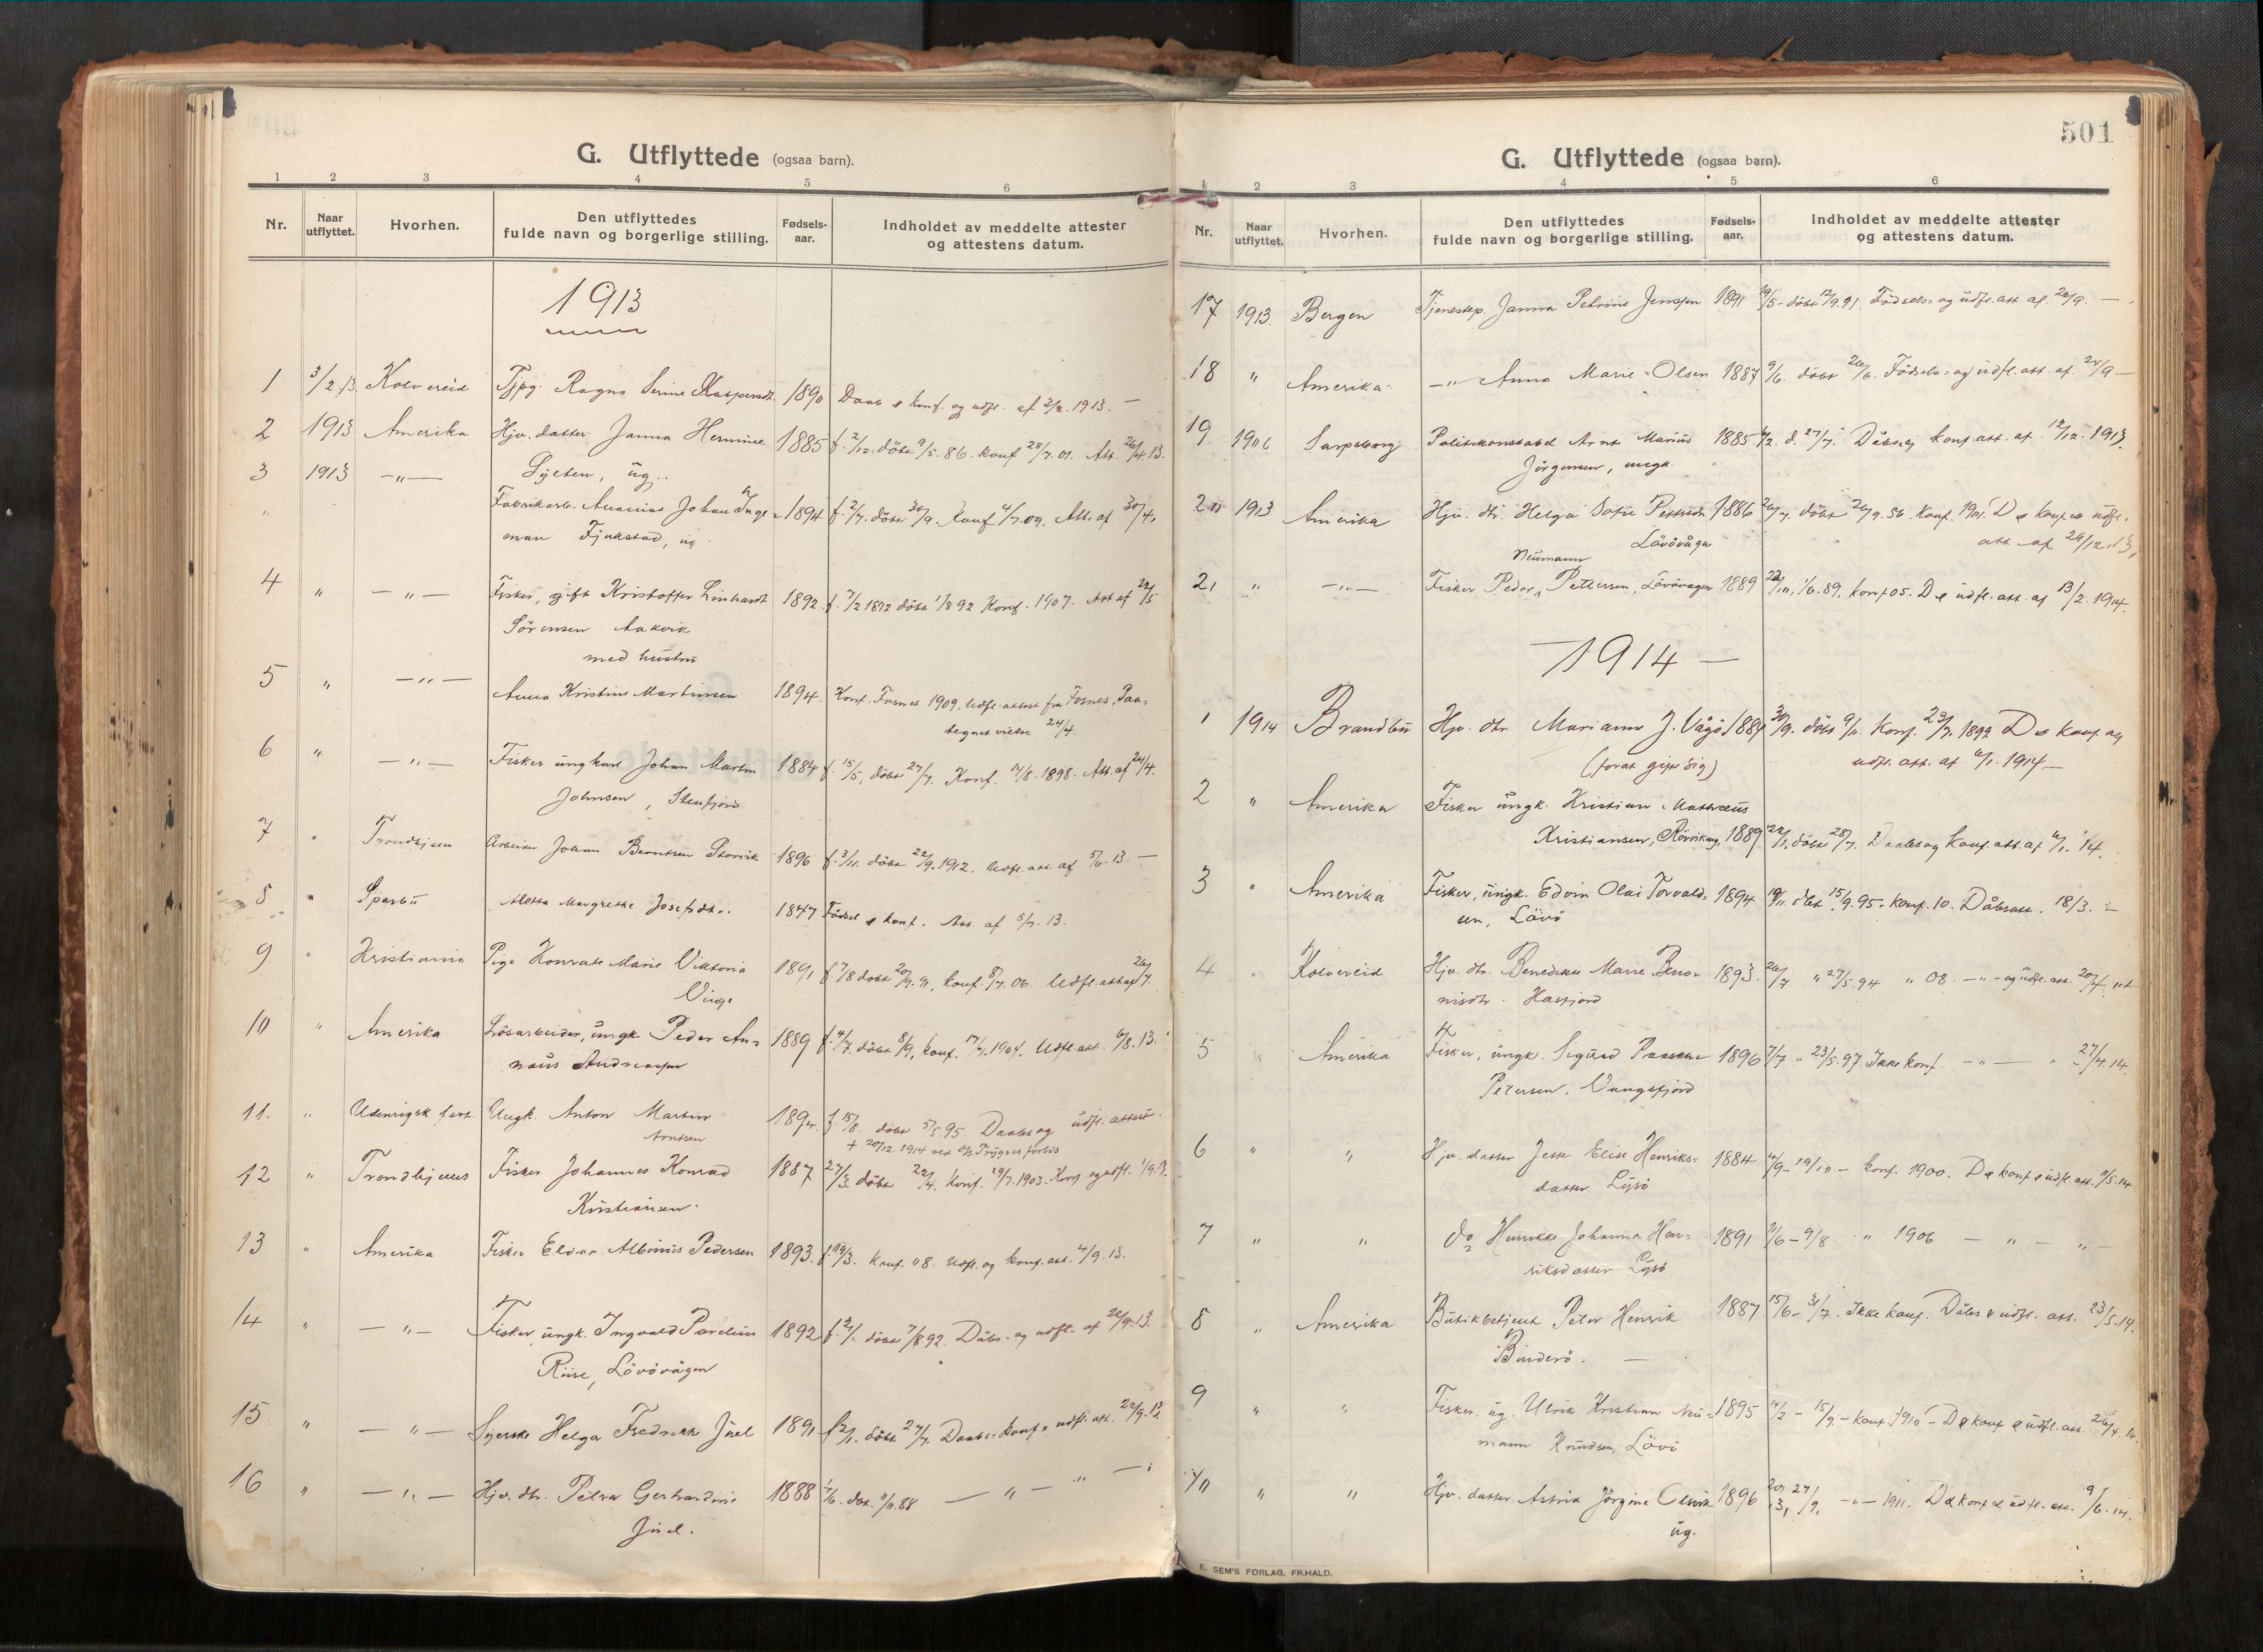 G. Utflyttede (ogsaa barn).
1 2 3 4 5 6
Nr. Naar utflyttet. Hvorhen. Den utflyttedes fulde navn og borgerlige stilling. Fødsels-aar. Indholdet av meddelte attester og attestens datum.
1913
1 3/2 13 Kolvereid Tjpg. Ragna Serine Kaspersdt. 1890 Daab & konf. og udfl. af 3/2. 1913. —
2 1913 Amerika Hjv. datter Janna Hermine 1885 f. 2/12. döbt 9/5. 86. konf 28/7. 01. Att. 26/4. 13.
3 1913 —"— ug.
Fabrikarb. Johan Inge= 1894 f. 2/7. döbt 30/9. Konf 4/7. 09. Att. af 30/4.
man Fjukstad, ug
4 " —"— Fisker, gift Kristoffer Linhardt 1892. f. 7/2 1892 döbt 1/8 92 Konf. 1907. Att af 29/5
Sörensen Aakvik
med hustru
5 " —"— Anna Kristine Martinsen 1894. Konf. Fosnes 1909. Udfl. attest fra Fosnes. Paa=
tegnet vielse 24/4.
6 " —"— Fisker ungkarl Johan Martin 1884 f. 15/5, döbt 27/7. Konf. 14/8. 1898. Att. af 24/4.
Johnsen, Stenfjord
7 " Trondhjem Arbeider Johan Berntsen Storvik 1896 f. 3/11. döbt 22/9. 1912. Udfl. att. af 5/6. 13. —
8 " Sparbu Margrethe Josefsdt. 1847 Födsel & konf. Att. af 5/7. 13.
9 " Kristiania Pige Konrade Marie Viktoria 1891 f 7/8 döbt 20/9. 91, konf. 8/7. 06. Udfl. att af 26/7.
Vinge
10 " Amerika Lösarbeider, ungk. Peder An= 1889 f. 4/7. döbt 8/9, konf. 17/7. 1904. Udfl. att. 6/8. 13.
näus Andreassen
11. " Udenrigsk fart. Ungk. Anton Martin 1894. f. 15/8. döbt 5/5 95. Daabs og udfl. attest.
Arntsen + 20/12. 1914 ved Trygves forlis
12 " Trondhjems Fisker Johannes Konrad 1887 27/3. döbt 22/4. Konf. 19/7. 1903. Konf. og udfl. 1/9. 13.
Kristiansen.
13 " Amerika Fisker Eldar Albinus Pedersen 1893. f. 19/3. Konf. 08. Udfl. og konf. att. 4/9. 13.
14 " —"— Fisker, ungk. Ingvald Parelius 1892 f. 2/1. döbt 7/8 92. Dåbs- og udfl. af 20/9. 13.
Riise, Lövövågen
15 " —"— Syerske Helga Fredrikke Juel 1891 f 2/1. döbt 27/7. Daabs= konf= udfl. att. 22/9. 13
16 " —"— Hjv. dtr. Petra Gerhardine 1888 1/6. döt. 11/11. 88 —"— "—
Juel.
501
G. Utflyttede (ogsaa barn).
1 2 3 4 5 6
Nr. Naar utflyttet. Hvorhen. Den utflyttedes fulde navn og borgerlige stilling. Fødsels-aar. Indholdet av meddelte attester og attestens datum.
17 1913 Bergen Tjenestep. Janna Petrine Jenssen 1891 19/5 - döbt 12/9. 91. Födsels= og udfl. att. af 20/9. —
18 " Amerika. —"— Anna Marie Olsen 1887 9/6. döbt 26/6. Födsels= og udfl. att. af 24/9. —
19 1906 Sarpsborg Politikonstabel Arnt Marius 1885 d. 27/7. Dåbs og konf. att. af 12/12. 1913.
Jörgensen, ungk.
20 1913 Amerika Hjv. dtr. Helga Sofie Pettersdtr. 1886 döbt 26/9. 86. Konf. 1901. D & konf & udfl.
Lövövågen att af 29/12. 13,
Neumann
21 " —"— Fisker Peder Pettersen, Lövövagen 1889 22/10, 1/6. 89, konf. 05. D & udfl. att. af 13/2. 1914.
— 1914 —
1 1914 Brandbu Hjv. dtr. Marianne J. Vågö 1884 30/9. döbt 9/11. Konf. 23/7. 1899 D & konf og
(forat gifte sig) udfl. att. af 6/1. 1914 —
2 " Amerika Fisker ungk. Kristian Mathæus
Kristiansen, Rörvikvåg. 1889 22/1, döbt 28/7. Daabs og Konf. att. af 6/1. 14.
3 " Amerika Fisker, ungk. Edvin Olai Torvald= 1894 19/11. döbt. 15/9. 95. konf. 10. Dåbsatt. 18/3. —
sen, Lövö
4 " Kolvereid Hjv. dtr. Benedikte Marie Bero= 1893. 26/7 " 27/5. 94 " 08. —"— og udfl. att. 20/4 14
nisdtr. Hasfjord
5 " Amerika Fisker, ungk. Sigurd 1896 7/7 " 23/5. 97. Ikke konf. —"— " 27/4. 14.
Petersen. Vangsfjord
6 " " Hjv. datter Elise Henriks= 1884 4/9 - 19/10 - konf. 1900. D & konf & udfl. att. 9/5. 14
datter Lysö
7 " " do Henrikke Johanna Hen= 1891 11/6 - 9/8 " 1906 — " — " —
riksdatter Lysö
8 " Amerika Butikbetjent Peter Henrik 1887 15/6 - 31/7. Ikke konf. Dåbs & udfl. att. 23/5. 14.
Binderö. —
9 " " Fisker. ug. Ulrik Kristian Neu= 1895 14/2 - 15/9 - konf. 1910 - D & konf & udfl. att. 26/4. 14.
mann Knudsen, Lövö
10 " " Hjv. datter. Astrid Jörgine Olsvik 1896 —"— 1911. D & konf & udfl. att. 9/6. 14.
ug.
E. SEM'S FORLAG, FR.HALD.